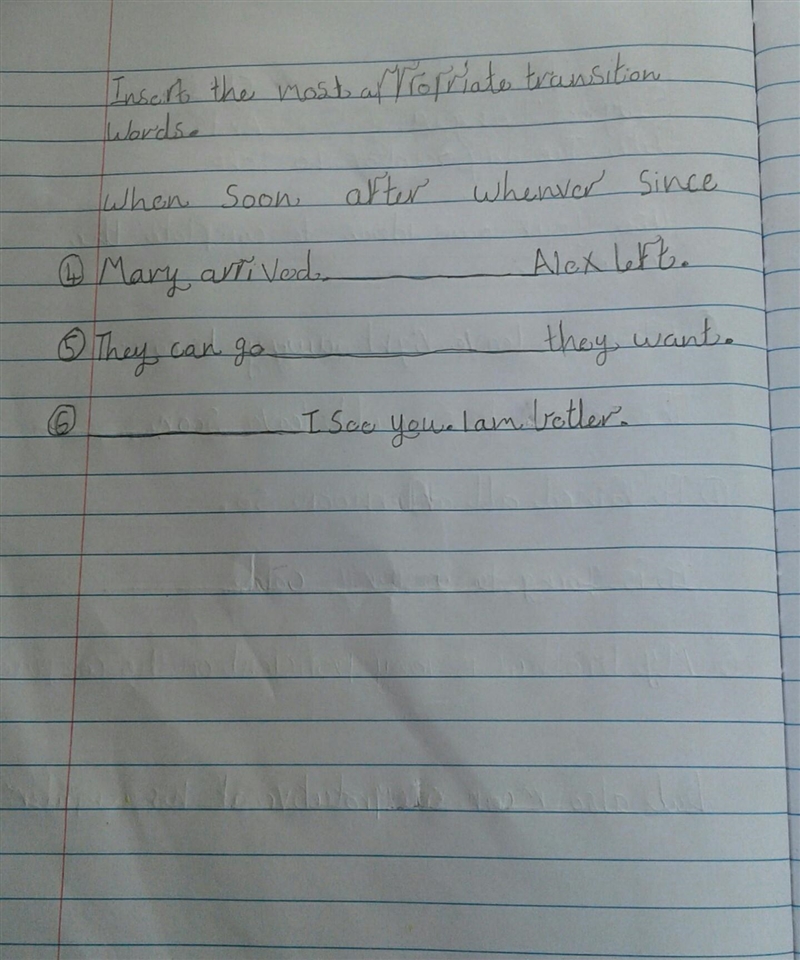 Insert the most appropriate transition
words.
When soon after whenver since
④ Mary arrived. __________ Alex left.
⑤ They can go __________ they want.
⑥ __________ I see you. I am better.